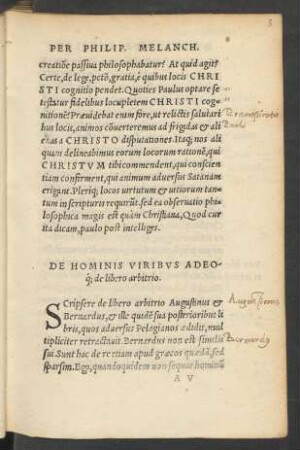 PER PHILIP. MELANCH.
creatiõe passiua philosophabatur? At quid agit?
Certe, de lege, pctõ, gratia, è quibus locis CHRI
STI cognitio pendet. Quoties Paulus optare se
testatur fidelibus locupletem CHRISTI cog-
nitionẽ? Præuidebat enim fore, ut relictis salutari
bus locis, animos cõuerteremus ad frigidas & ali
enas a CHRISTO disputationes. Itaq; nos ali
quam delineabimus eorum locorum rationẽ, qui
CHRISTVM tibi commendent, qui conscien
tiam confirment, qui animum aduersus Satanam
erigant. Pleriq; locos uirtutum & uitiorum tan-
tum in scripturis requirũt. sed ea obseruatio phi
losophica magis est quàm Christiana, Quod cur
ita dicam, paulo post intelliges.
DE HOMINIS VIRIBVS ADEO-
q; de libero arbitrio.
SCripsere de libero arbitrio Augustinus &
Bernardus, & ille quidẽ sua posterioribus li
bris, quos aduersus Pelagianos ædidit, mul
tipliciter retractauit. Bernardus non est similis
sui. Sunt hac de re etiam apud græcos quædã, sed
sparsim. Ego, quandoquidem non sequar hominũ
A V
Augustinus
Bernardus